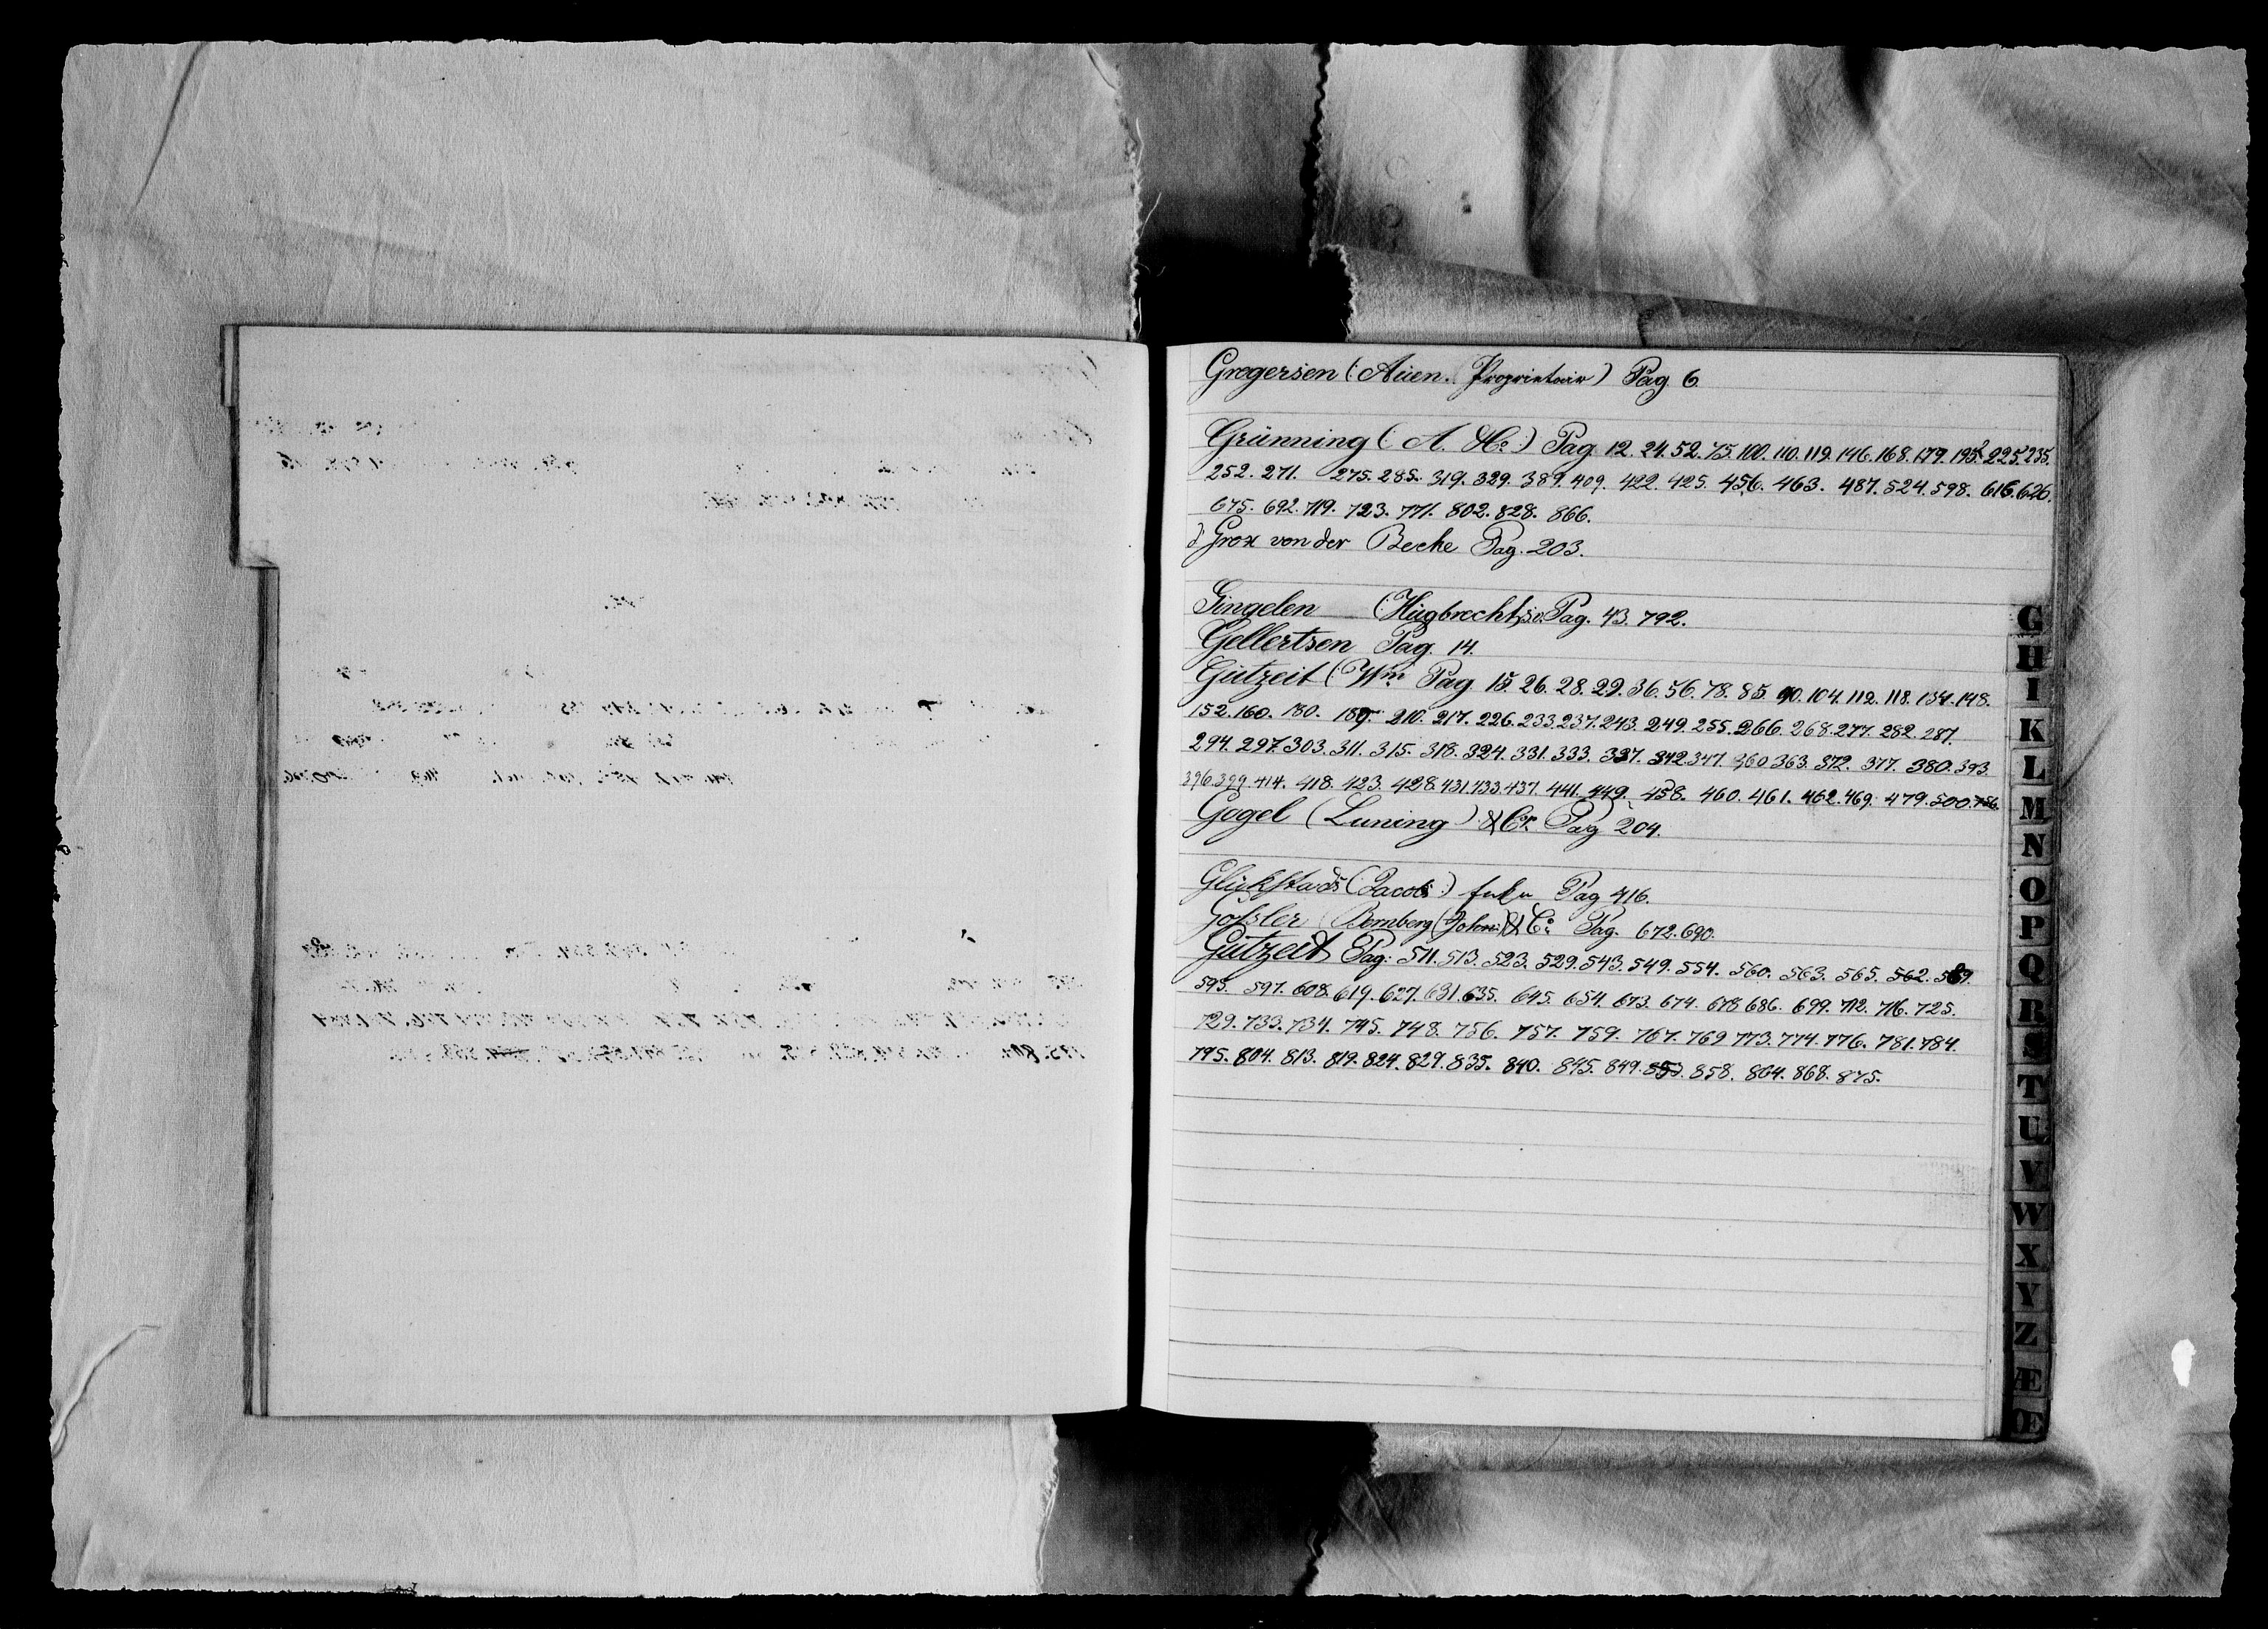 Gregersen (: Auen. Proprietair) Pag 6
Grünning (: A. H: ) Pag 12. 24. 52. 75. 100. 110. 119. 146. 168. 179. 195. 225. 235.
252. 271. 275. 285. 319. 329. 389. 409. 422. 425. 456. 463. 487. 524. 598. 616. 626.
675. 692. 719. 723. 771. 802. 828. 866.
von der Becke Pag. 203.
Gingelen (: Hugbrecht Pag. 43. 792.
Gellertsen Pag. 14.
Gutzeit (: Wm Pag 15. 26. 28. 29. 36. 56. 78. 85. 90. 104. 112. 118. 134. 148.
152. 160. 180. 189. 210. 217. 226. 233. 237. 243. 249. 255. 266. 268. 277. 282. 287.
294. 297. 303. 311. 315. 318. 324. 331. 333. 337. 342. 347. 360. 363. 372. 377. 380. 393.
396. 399. 414. 418. 423. 428. 431. 433. 437. 441. 449. 458. 460. 461. 462. 469. 479. 500. 756.
Gogel (Luning) & Co. Pag 204.
Glückstads (: Jacob :) Pag 416.
Gossler Bernberg (John:) & Co: Pag. 672. 690.
Gutzeit Pag: 511. 513. 523. 529. 543. 549. 554. 560. 563. 565. 562. 589.
595. 597. 608. 619. 627. 631. 635. 645. 654. 673. 674. 678. 686. 699. 712. 716. 725.
729. 733. 734. 745. 748. 756. 757. 759. 767. 769. 773. 774. 776. 781. 784.
795. 804. 813. 819. 824. 829. 835. 840. 845. 849. 853. 858. 864. 868. 875.
G
H
I
K
L
M
N
O
P
Q
R
S
T
U
V
W
X
Y
Z
Æ
Œ